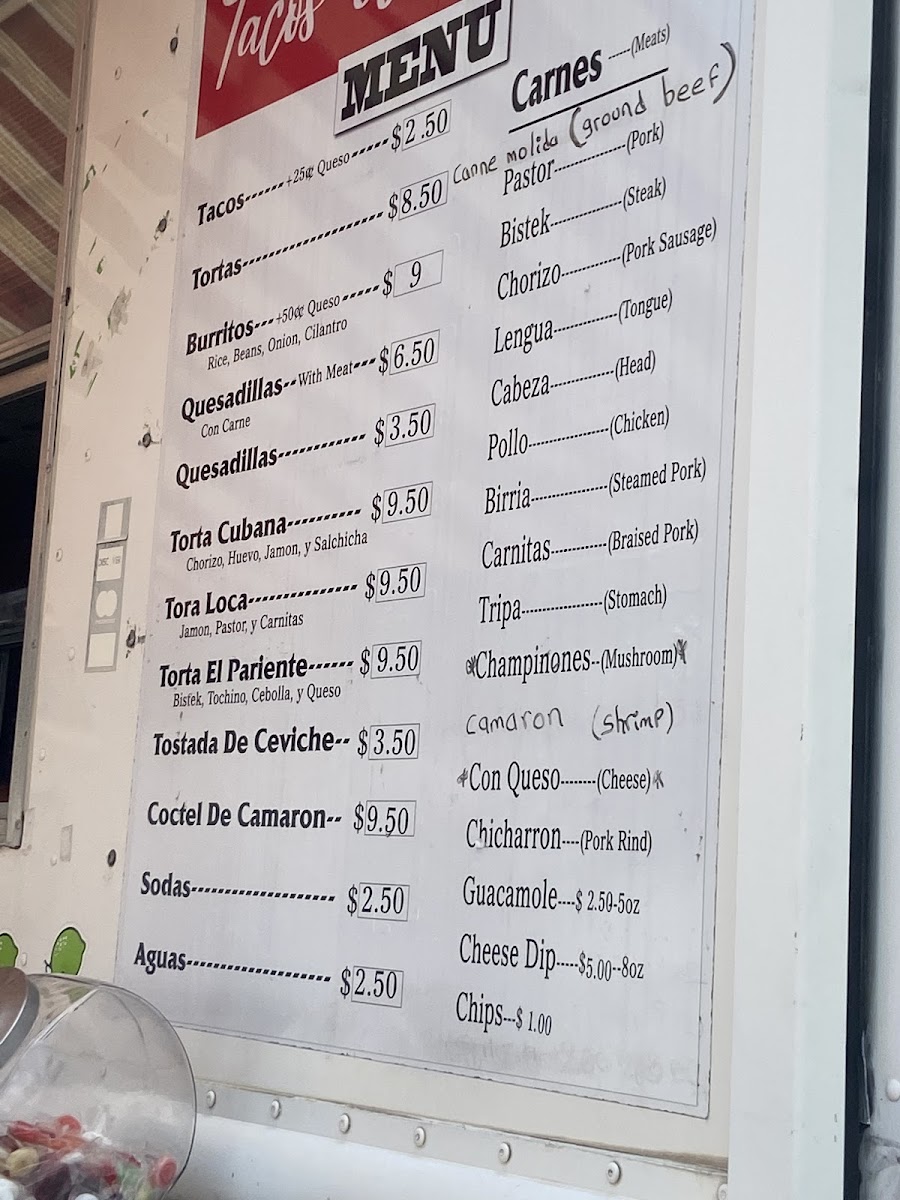 Tacos
MENU
Tacos------+25¢ Queso-----$2.50
Tortas--------------------$8.50
Burritos---+50¢ Queso-----$ 9
Rice, Beans, Onion, Cilantro
Quesadillas--With Meat---$6.50
Con Carne
Quesadillas------------$3.50
Torta Cubana----------$9.50
Chorizo, Huevo, Jamon, y Salchicha
Tora Loca---------------$9.50
Jamon, Pastor, y Carnitas
Torta El Pariente------$9.50
Bistek, Tochino, Cebolla, y Queso
Tostada De Ceviche--$3.50
Coctel De Camaron--$9.50
Sodas-------------------$2.50
Aguas-------------------$2.50
Carnes-----(Meats)
Canne molida (ground beef)
Pastor--------------(Pork)
Bistek--------------(Steak)
Chorizo------------(Pork Sausage)
Lengua-------------(Tongue)
Cabeza-------------(Head)
Pollo-----------------(Chicken)
Birria----------------(Steamed Pork)
Carnitas-----------(Braised Pork)
Tripa-----------------(Stomach)
*Champinones--(Mushroom)*
camaron (shrimp)
*Con Queso--------(Cheese)*
Chicharron----(Pork Rind)
Guacamole----$ 2.50-5oz
Cheese Dip-----$5.00--8oz
Chips---$ 1.00